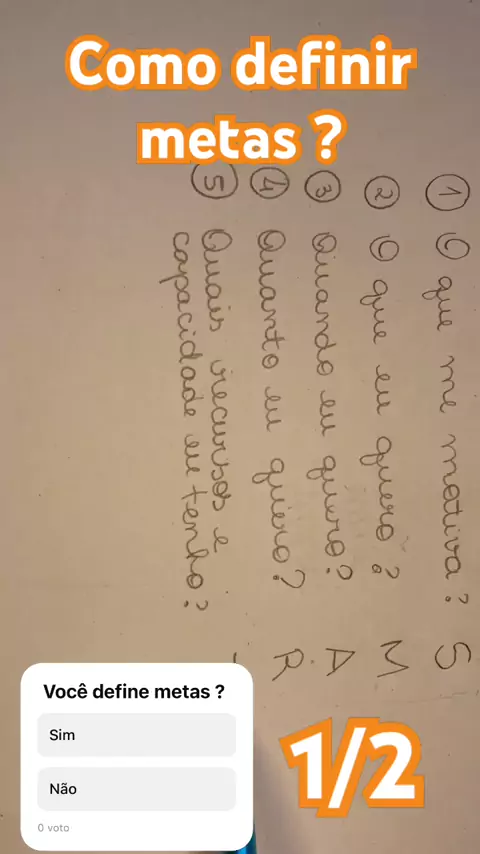 Como definir
metas ?
① O que me motiva? S
② O que eu quero? M
③ Quando eu quero? A
④ Quanto eu quero? R
⑤ Quais recursos e
capacidade eu tenho?
Você define metas ?
Sim
Não
0 voto
1/2